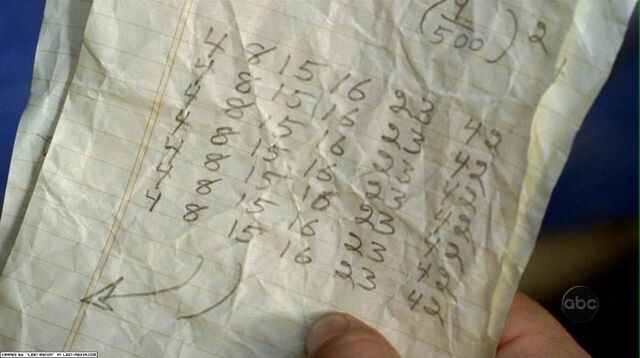 500 2
4 8 15 16 23 42
4 8 15 16 23 42
4 8 15 16 23 42
4 8 15 16 23 42
4 8 15 16 23 42
4 8 15 16 23 42
4 8 15 16 23 42
abc